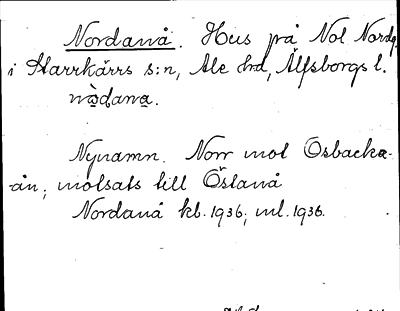 Nordanå. Hus på Nol Nordg.
i Starrkärrs s:n, Ale hd, Älfsborgs l.
Nynamn. Norr mot Osbacka-
ån; motsats till Östanå
Nordanå kb. 1936; ml. 1936.